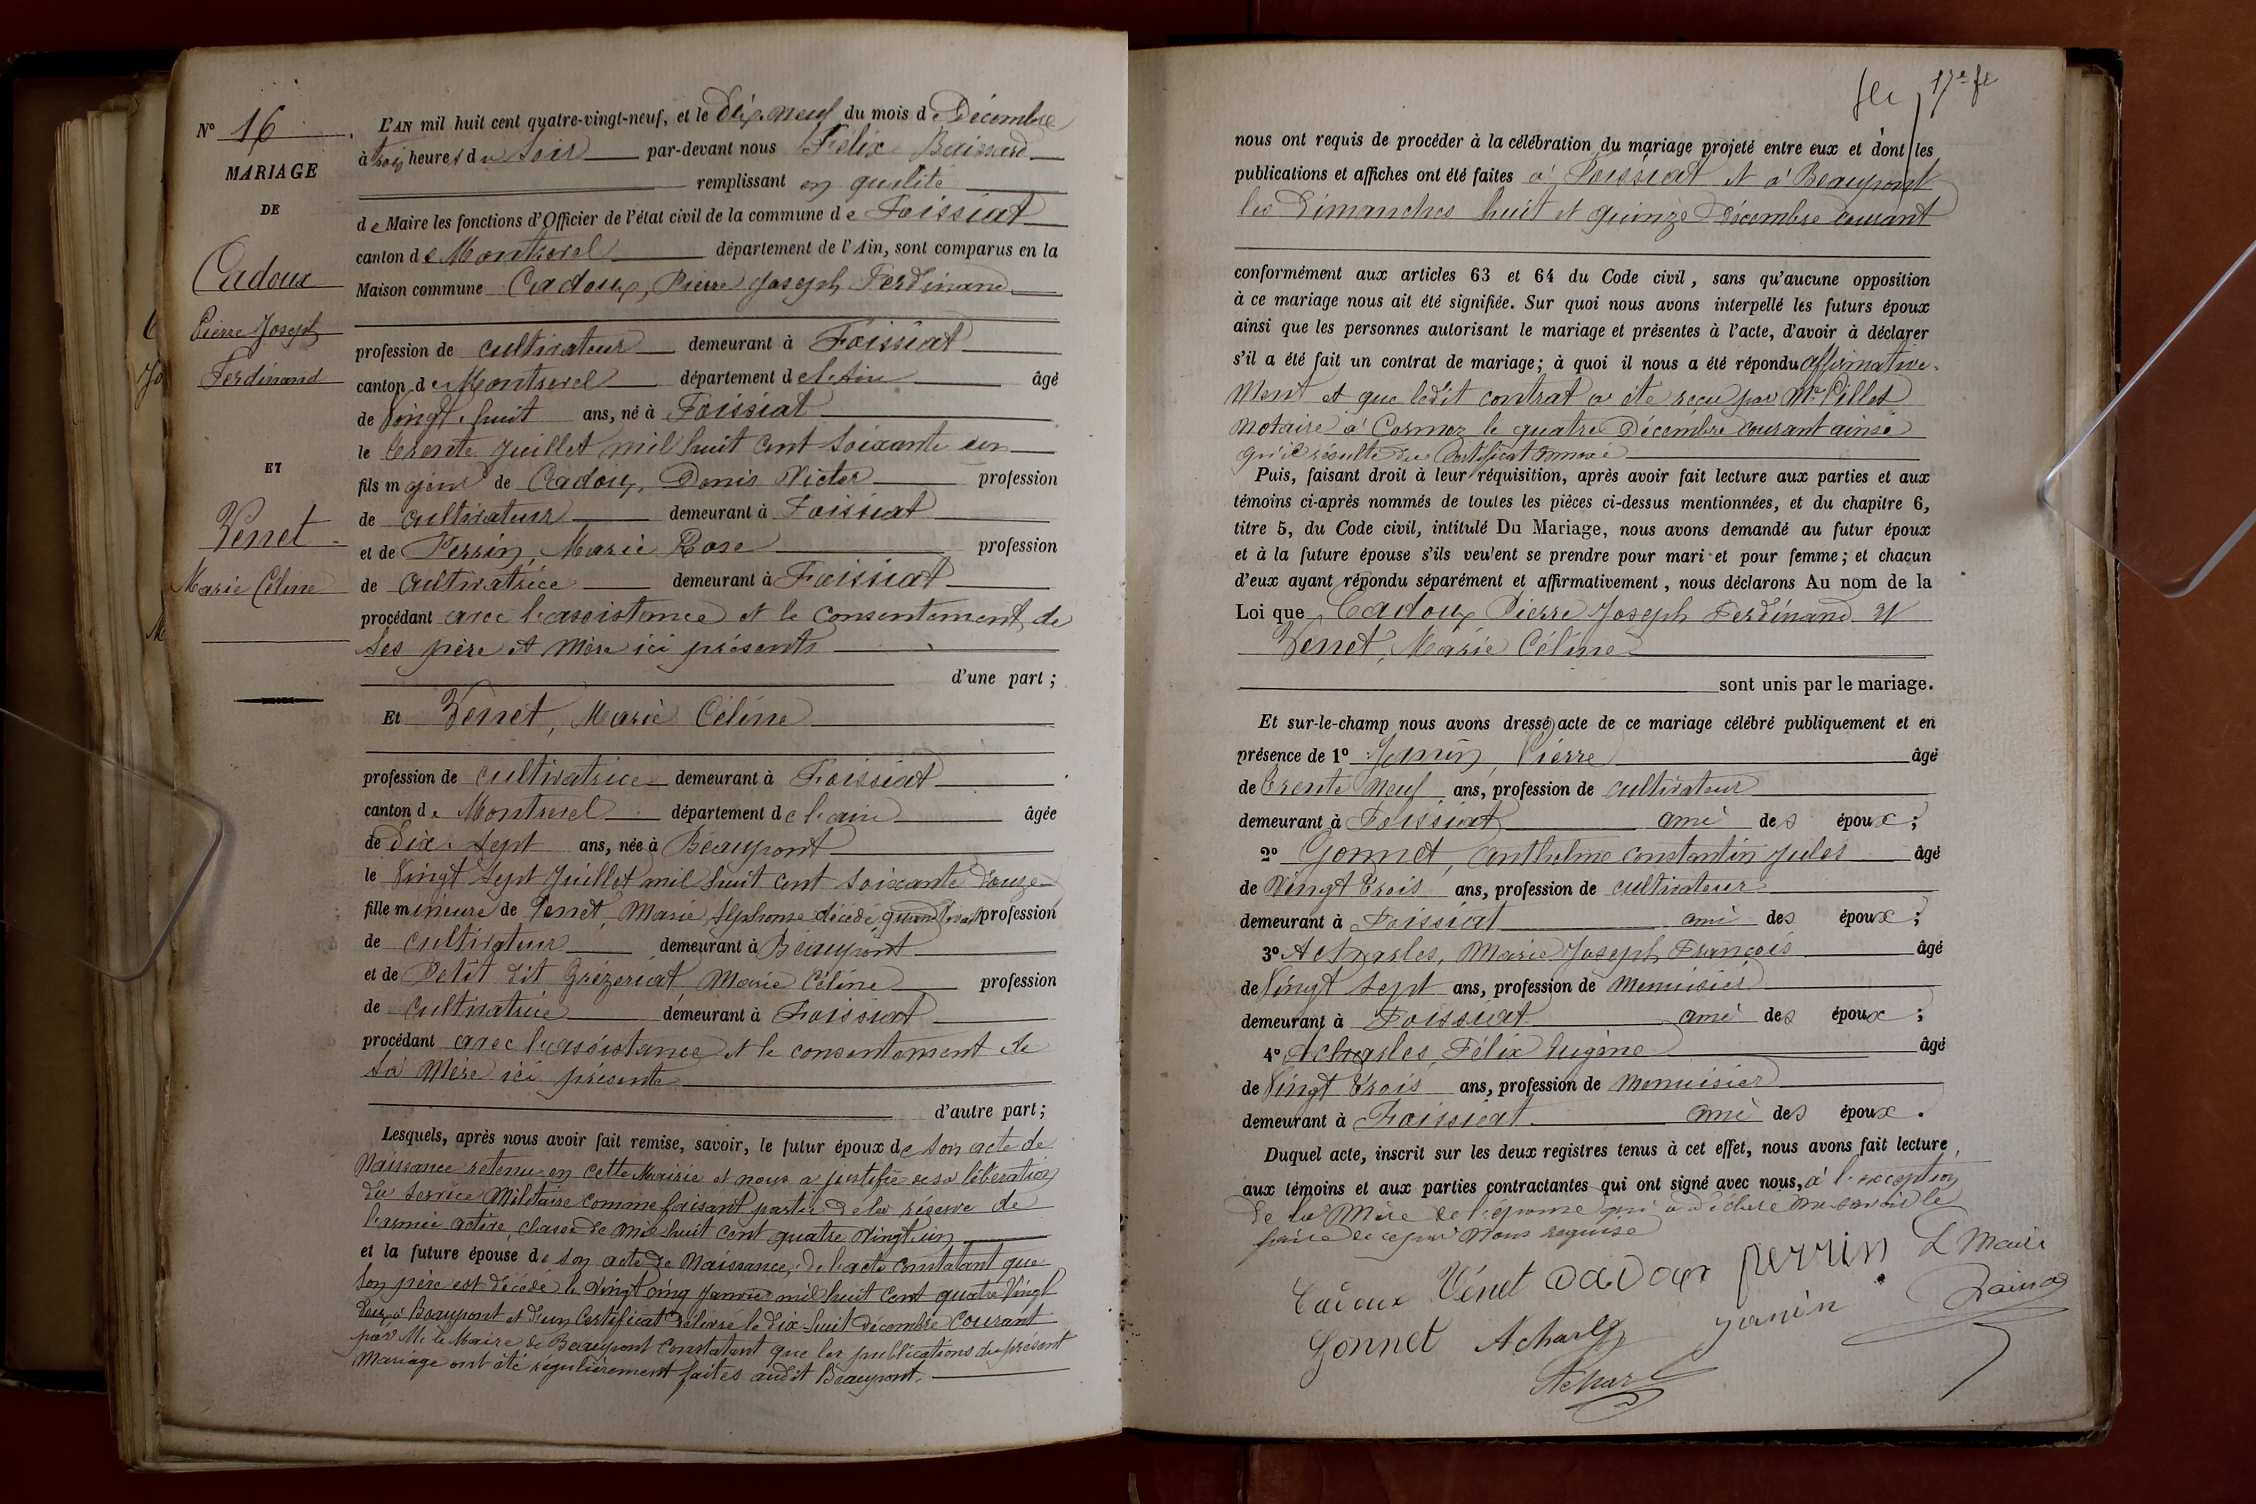 N° 16
MARIAGE
DE
Cadoux
Pierre Joseph
Ferdinand
ET
Venet
Marie Céline
L'AN mil huit cent quatre-vingt-neuf, et le dix-neuf du mois de Décembre
à trois heures du soir par-devant nous Félix
remplissant en qualité
de Maire les fonctions d'Officier de l'état civil de la commune de Foissiat
canton de Montrevel département de l'Ain, sont comparus en la
Maison commune Cadoux, Pierre Joseph Ferdinand
profession de cultivateur demeurant à Foissiat
canton de Montrevel département de l'Ain âgé
de Vingt-huit ans, né à Foissiat
le trente juillet mil huit cent soixante un
fils majeur de Cadoux, Denis Victor profession
de cultivateur demeurant à Foissiat
et de Perrin, Marie Rose profession
de cultivatrice demeurant à Foissiat
procédant avec l'assistance et le consentement de
ses père et mère ici présents
d'une part ;
Et Venet, Marie Céline
profession de cultivatrice demeurant à Foissiat
canton de Montrevel département de l'ain âgée
de Dix-sept ans, née à Beaupont
le Vingt sept juillet mil huit cent soixante douze
fille mineure de Venet, Marie Alphonse décédé quand vivait profession
de cultivateur demeurant à Beaupont
et de Petit dit Grézeriat Marie Céline profession
de cultivatrice demeurant à Foissiat
procédant avec l'assistance et le consentement de
sa Mère ici présente
d'autre part ;
Lesquels, après nous avoir fait remise, savoir, le futur époux de son acte de
Naissance retenu en cette Mairie et nous a justifié de sa libération
du service Militaire comme faisant partie de la réserve de
l'armée active, classe de mil huit cent quatre Vingt-un
et la future épouse de son acte de Naissance, de l'acte constatant que
son père est décédé le vingt cinq janvier mil huit cent quatre Vingt
deux à Beaupont et d'un Certificat délivré le dix-huit décembre courant
par Mr le Maire de Beaupont Constatant que les publications du présent
Mariage ont été régulièrement faites audit Beaupont.
17e
nous ont requis de procéder à la célébration du mariage projeté entre eux et dont les
publications et affiches ont été faites à Foissiat et à Beaupont
les Dimanches huit et quinze Décembre courant
conformément aux articles 63 et 64 du Code civil, sans qu'aucune opposition
à ce mariage nous ait été signifiée. Sur quoi nous avons interpellé les futurs époux
ainsi que les personnes autorisant le mariage et présentes à l'acte, d'avoir à déclarer
s'il a été fait un contrat de mariage ; à quoi il nous a été répondu affirmative-
ment et que ledit contrat a été reçu par Me Pillet
notaire à Cormoz le quatre Décembre courant ainsi
qu'il résulte du Certificat annexé
Puis, faisant droit à leur réquisition, après avoir fait lecture aux parties et aux
témoins ci-après nommés de toutes les pièces ci-dessus mentionnées, et du chapitre 6,
titre 5, du Code civil, intitulé Du Mariage, nous avons demandé au futur époux
et à la future épouse s'ils veulent se prendre pour mari et pour femme ; et chacun
d'eux ayant répondu séparément et affirmativement, nous déclarons Au nom de la
Loi que Cadoux Pierre Joseph Ferdinand et
Venet, Marie Céline
sont unis par le mariage.
Et sur-le-champ nous avons dressé acte de ce mariage célébré publiquement et en
présence de 1° Janin, Pierre âgé
de trente Neuf ans, profession de cultivateur
demeurant à Foissiat ami des époux ;
2° Gonnet, Anthelme Constantin Jules âgé
de Vingt trois ans, profession de cultivateur
demeurant à Foissiat ami des époux ;
3° Acharles, Marie Joseph François âgé
de Vingt sept ans, profession de Menuisier
demeurant à Foissiat ami des époux ;
4° Acharles, Félix Eugène âgé
de Vingt trois ans, profession de Menuisier
demeurant à Foissiat ami des époux.
Duquel acte, inscrit sur les deux registres tenus à cet effet, nous avons fait lecture
aux témoins et aux parties contractantes qui ont signé avec nous, à l'exception
de la Mère de l'épouse qui a déclaré ne savoir le
faire de ce par Nous requise
Cadoux Vénet cadoux perrin L Maire
Gonnet Acharles janin
Acharles